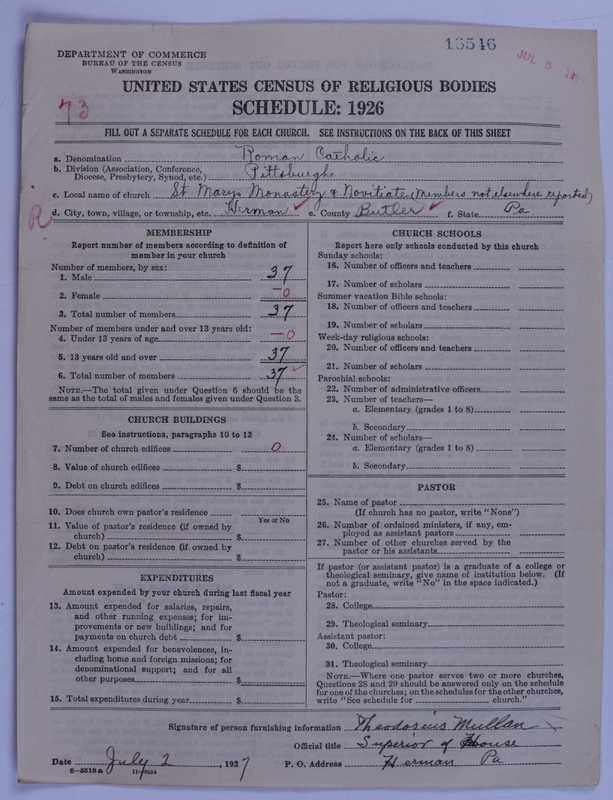 16546
JUL 5 19
DEPARTMENT OF COMMERCE
BUREAU OF THE CENSUS
WASHINGTON
UNITED STATES CENSUS OF RELIGIOUS BODIES
SCHEDULE: 1926
73
FILL OUT A SEPARATE SCHEDULE FOR EACH CHURCH. SEE INSTRUCTIONS ON THE BACK OF THIS SHEET
a. Denomination Roman Catholic
b. Division (Association, Conference, Diocese, Presbytery, Synod, etc.) Pittsburgh
c. Local name of church St Marys Monastery & Novitiate (Members not elsewhere reported)
R
d. City, town, village, or township, etc. Herman ✓ e. County Butler ✓ f. State Pa.
MEMBERSHIP
Report number of members according to definition of
member in your church
Number of members, by sex:
1. Male 37
2. Female —0
3. Total number of members 37
Number of members under and over 13 years old:
4. Under 13 years of age —0
5. 13 years old and over 37
6. Total number of members 37 ✓
NOTE.—The total given under Question 6 should be the
same as the total of males and females given under Question 3.
CHURCH BUILDINGS
See instructions, paragraphs 10 to 12
7. Number of church edifices 0
8. Value of church edifices $
9. Debt on church edifices $
10. Does church own pastor's residence
Yes or No
11. Value of pastor's residence (if owned by
church) $
12. Debt on pastor's residence (if owned by
church) $
EXPENDITURES
Amount expended by your church during last fiscal year
13. Amount expended for salaries, repairs,
and other running expenses; for im-
provements or new buildings; and for
payments on church debt $
14. Amount expended for benevolences, in-
cluding home and foreign missions; for
denominational support; and for all
other purposes $
15. Total expenditures during year $
CHURCH SCHOOLS
Report here only schools conducted by this church
Sunday schools:
16. Number of officers and teachers
17. Number of scholars
Summer vacation Bible schools:
18. Number of officers and teachers
19. Number of scholars
Week-day religious schools:
20. Number of officers and teachers
21. Number of scholars
Parochial schools:
22. Number of administrative officers
23. Number of teachers—
a. Elementary (grades 1 to 8)
b. Secondary
24. Number of scholars—
a. Elementary (grades 1 to 8)
b. Secondary
PASTOR
25. Name of pastor
(If church has no pastor, write "None")
26. Number of ordained ministers, if any, em-
ployed as assistant pastors
27. Number of other churches served by the
pastor or his assistants
If pastor (or assistant pastor) is a graduate of a college or
theological seminary, give name of institution below. (If
not a graduate, write "No" in the space indicated.)
Pastor:
28. College
29. Theological seminary
Assistant pastor:
30. College
31. Theological seminary
NOTE.—Where one pastor serves two or more churches,
Questions 28 and 29 should be answered only on the schedule
for one of the churches; on the schedules for the other churches,
write "See schedule for church."
Signature of person furnishing information Theodosius Mullan
Official title Superior of House
Date July 2, 1927 P. O. Address Herman Pa
8—5518a 11—9054